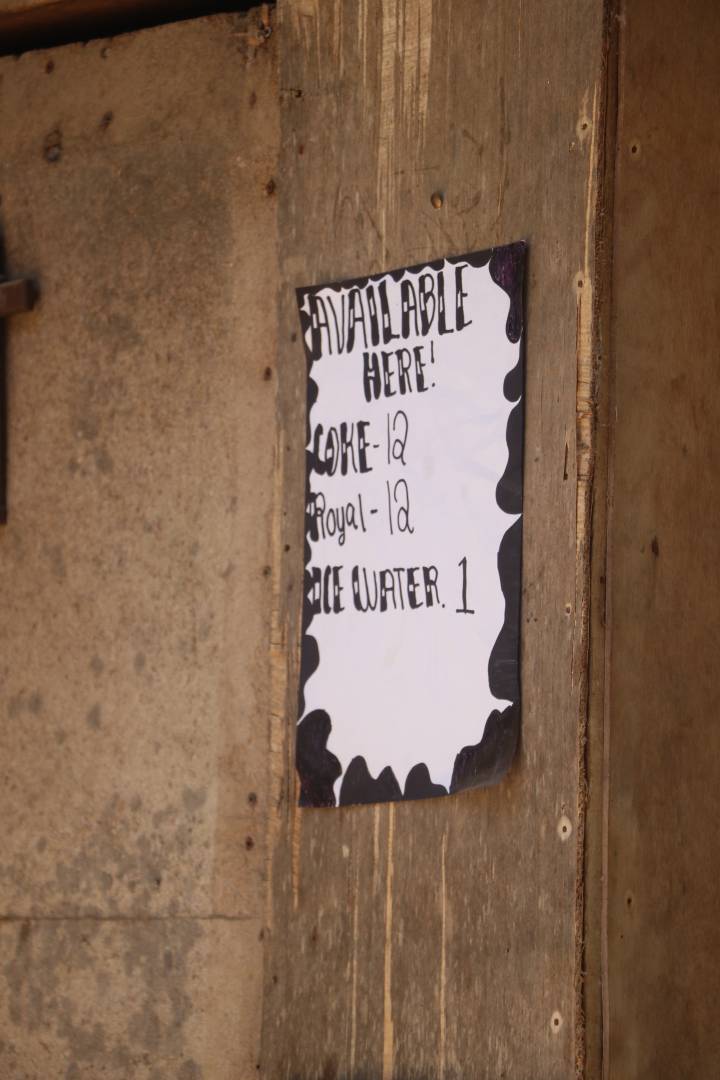 AVAILABLE
HERE!
COKE-12
Royal-12
ICE WATER. 1